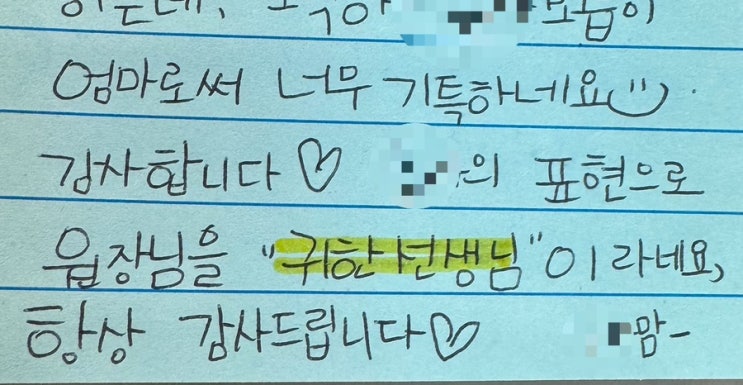 엄마로써 너무 기특하네요
감사합니다♡ 의 표현으로
원장님을 "귀한선생님"이라네요,
항상 감사드립니다♡ 맘-